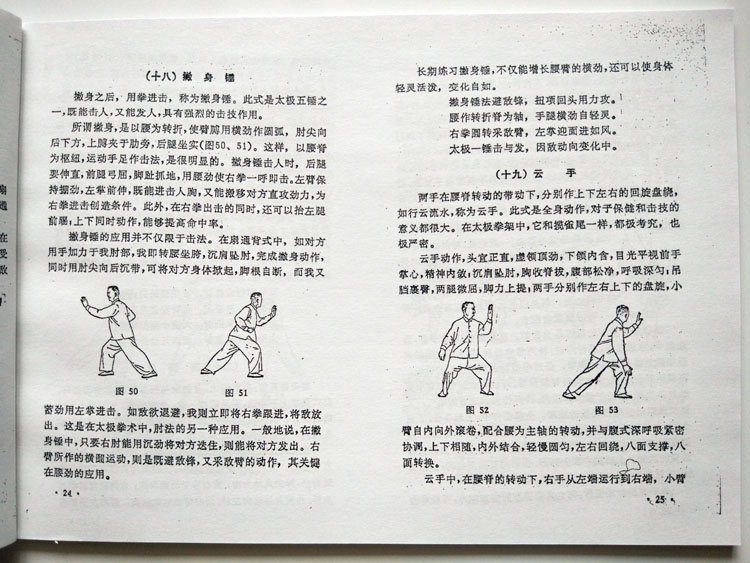 (十八) 撇身锤
撇身之后，用拳进击，称为撇身锤。此式是太极五锤之
一，既能击人，又能发人，具有强烈的击技作用。
所谓撇身，是以腰为转折，使臂膊用横劲作圆弧，肘尖向
后下方，上膊夹于肋旁，后腿坐实(图50、51)。这样，以腰脊
为枢纽，运动手足作击法，是很明显的。撇身锤击人时，后腿
要伸直，前腿弓屈，脚趾抓地，用腰劲使右拳一呼即击。左臂保
持掤劲，左掌前伸，既能进击人胸，又能搬移对方直攻劲力，为
右拳进击创造条件。此外，在右拳出击的同时，还可以抬左腿
前踢；上下同时动作，能够提高命中率。
撇身锤的应用并不仅限于击法。在扇通背式中，如对方
用手加力于我肘部，我即转腰坐胯，沉肩坠肘，完成撇身动作，
同时用肘尖向后沉带，可将对方身体掀起，脚根自断，而我又
图 50
图 51
蓄劲用左掌进击。如敌欲退避，我则立即将右拳跟进，将敌放
出。这是在太极拳术中，肘法的另一种应用。一般地说，在撇
身锤中，只要右肘能用沉劲将对方迭住，则能将对方发出。右
臂所作的横圆运动，则是既避敌锋，又采敌臂的动作，其关键
在腰劲的应用。
· 24 ·
长期练习撇身锤，不仅能增长腰臂的横劲，还可以使身体
轻灵活泼，变化自如。
撇身锤法避敌锋，扭项回头用力攻。
腰作转折脊为轴，手腿横劲自轻灵。
右拳圆转采敌臂，左掌迎面进如风。
太极一锤击与发，因敌动向变化中。
(十九) 云手
两手在腰脊转动的带动下，分别作上下左右的回旋盘绕，
如行云流水，称为云手。此式是全身动作，对于保健和击技的
意义都很大。在太极拳架中，它和揽雀尾一样，都极考究，也
极严密。
云手动作，头宜正直，虚领顶劲，下颌内含，目光平视前手
掌心，精神内敛，沉肩坠肘，胸收脊拔，腹部松净，呼吸深匀，吊
裆裹臀，两腿微屈，脚力上提，两手分别作左右上下的盘旋，小
图 52
图 53
臂自内向外滚卷，配合腰为主轴的转动，并与腹式深呼吸紧密
协调，上下相随，内外结合，轻慢圆匀，左右回绕，八面支撑，八
面转换。
云手中，在腰脊的转动下，右手从左端运行到右端，小臂
· 25 ·